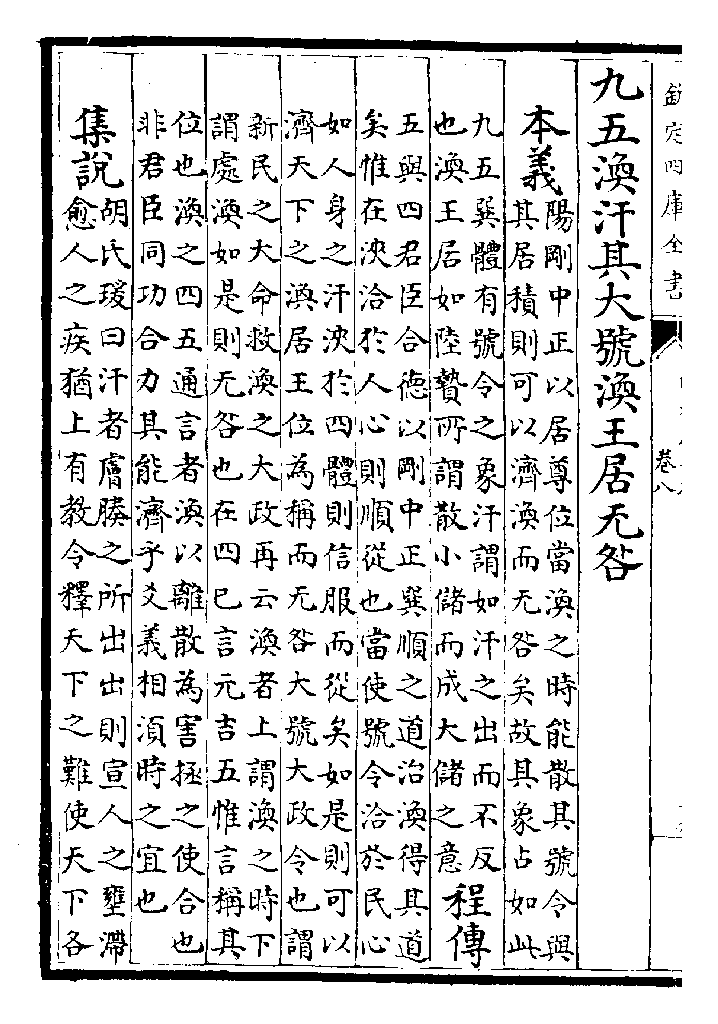 欽定四庫全書
卷八
九五渙汗其大號渙王居无咎
本義
陽剛中正以居尊位當渙之時能散其號令與
其居積則可以濟渙而无咎矣故其象占如此
九五巽體有號令之象汗謂如汗之出而不反
也渙王居如陸贄所謂散小儲而成大儲之意
程傳
五與四君臣合德以剛中正巽順之道治渙得其道
矣惟在浹洽於人心則順從也當使號令洽於民心
如人身之汗浹於四體則信服而從矣如是則可以
濟天下之渙居王位為稱而无咎大號大政令也謂
新民之大命救渙之大政再云渙者上謂渙之時下
謂處渙如是則无咎也在四已言元吉五惟言稱其
位也渙之四五通言者渙以離散為害拯之使合也
非君臣同功合力其能濟乎爻義相須時之宜也
集說
胡氏瑗曰汗者膚腠之所出出則宣人之壅滯
愈人之疾猶上有教令釋天下之難使天下各